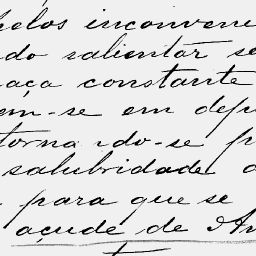 pelos inconveni
do salientar se
aça constante
em-se em depu
torna ndo-se p
salubridade
para que se
açude de Ar